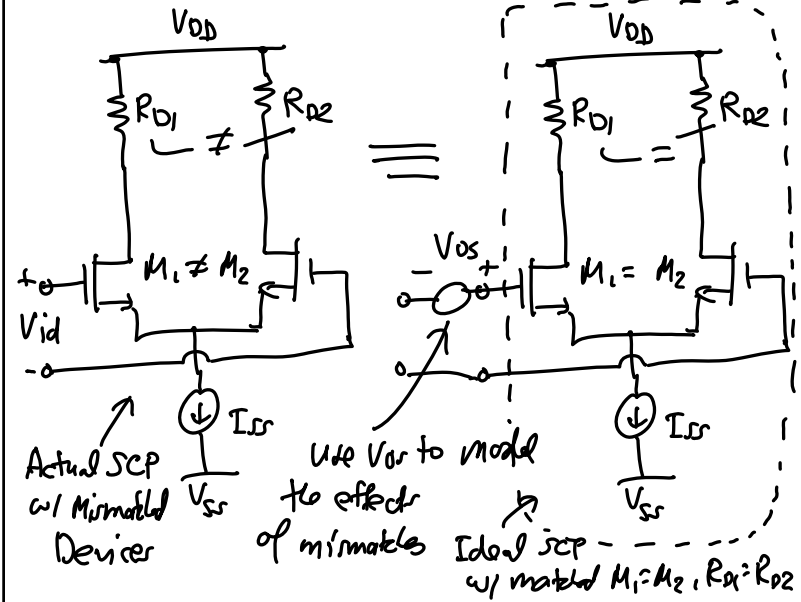 VDD
RD1 ≠ RD2
M1 ≠ M2
+
Vid
-
ISS
VSS
Actual SCP
w/ Mismatched
Devices
≡
VDD
RD1 = RD2
- Vos +
M1 = M2
ISS
VSS
Use Vos to model
the effects
of mismatches
Ideal SCP
w/ matched M1=M2, RD1=RD2